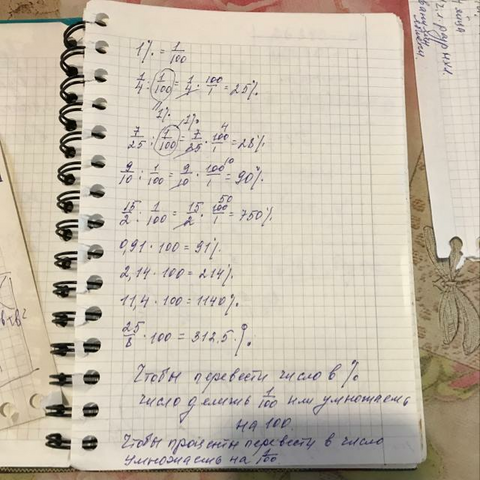 1% = 1/100
1/4 : 1/100 = 1/4 · 100/1 = 25%
1%
1%
7/25 : 1/100 = 7/25 · 100/1 = 28%
4
9/10 : 1/100 = 9/10 · 100/1 = 90%
10
15/2 : 1/100 = 15/2 · 100/1 = 750%
50
0,91 · 100 = 91%
2,14 · 100 = 214%
11,4 · 100 = 1140%
25/8 · 100 = 312,5
Чтобы перевести число в %
число делишь 1/100 или умножаешь
на 100.
Чтобы проценты перевести в число
умножаешь на 1/100